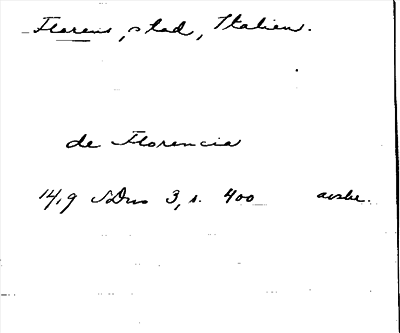 Florens, stad, Italien.
de Florencia
14/9 SDns 3, s. 400 avskr.